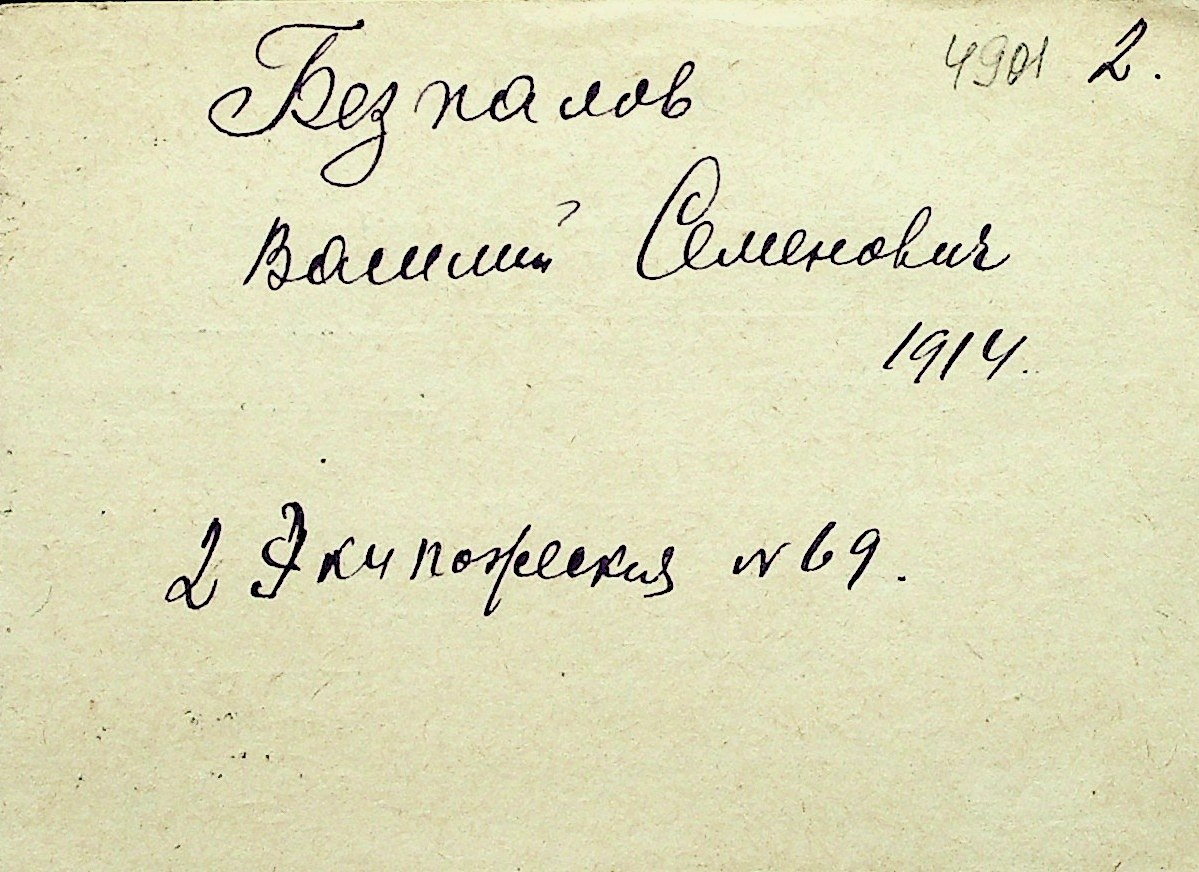 4901 2.
Безпалов
Василий Семенович
1914.
2 Экипожеская № 69.